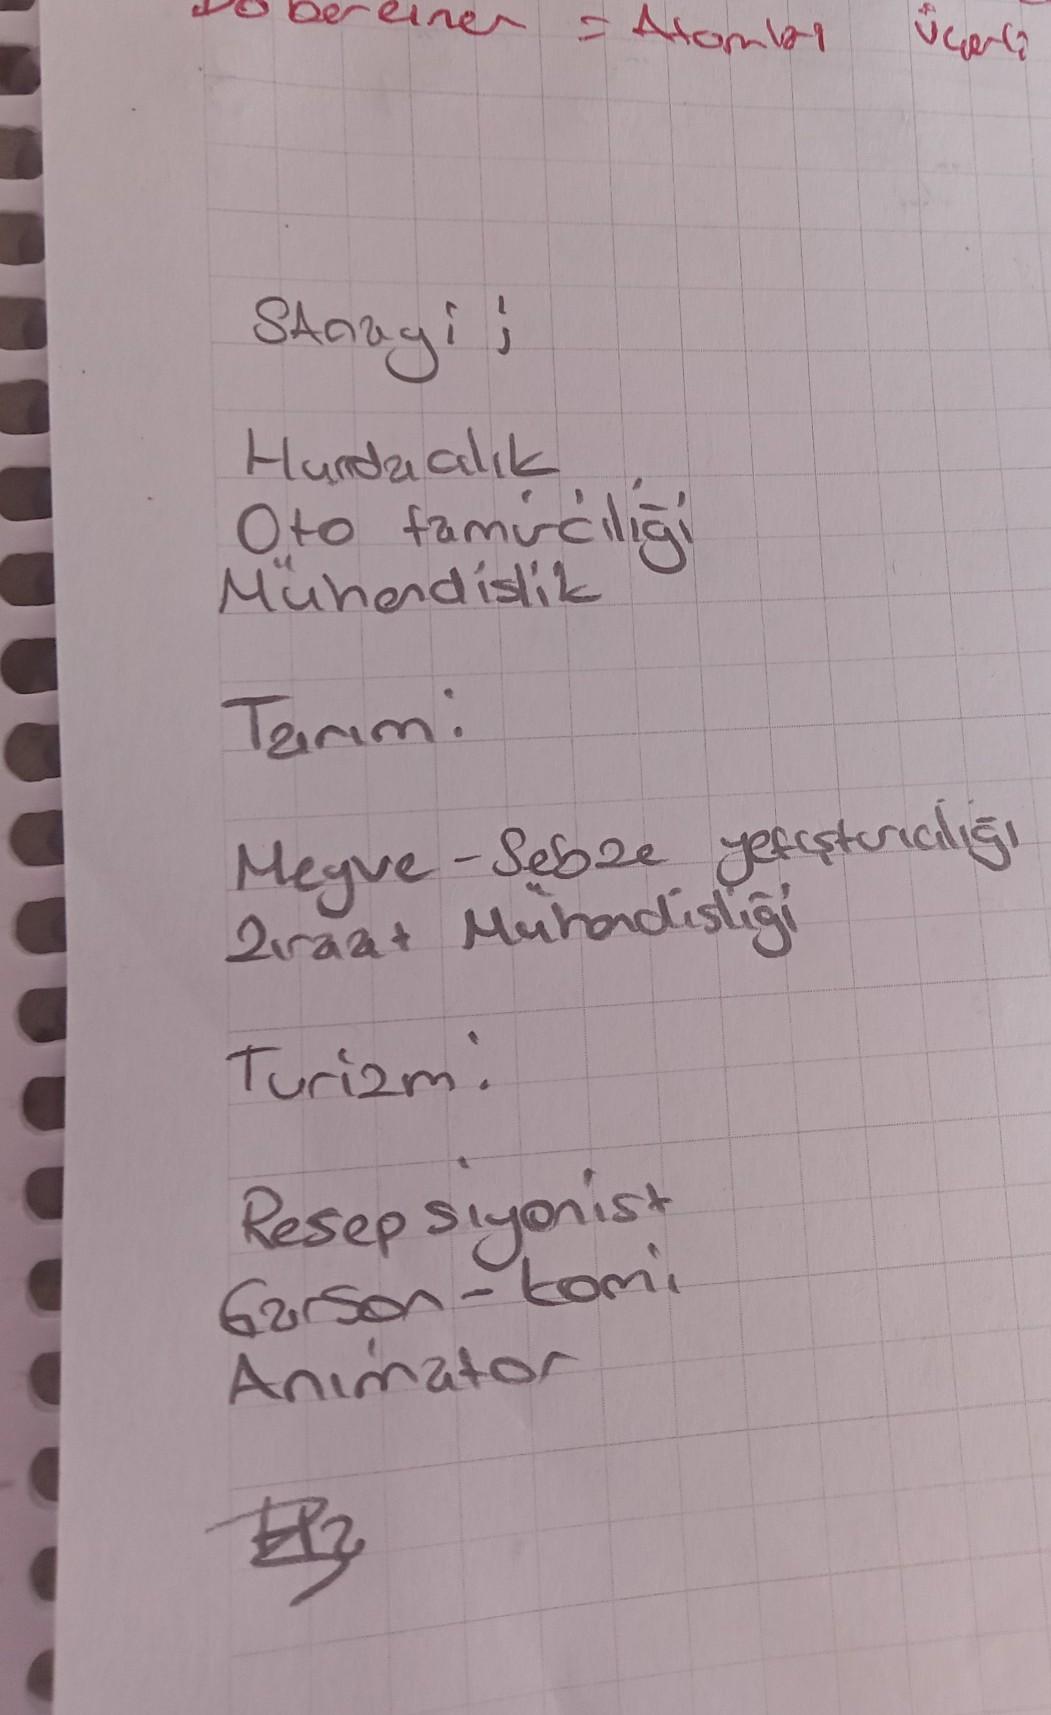 Döbereiner = Atomları üçerli
Sanayi ;
Hurdacılık
Oto tamirciliği
Mühendislik
Tarım :
Meyve - Sebze yetiştiriciliği
Ziraat Mühendisliği
Turizm :
Resepsiyonist
Garson - komi
Animatör